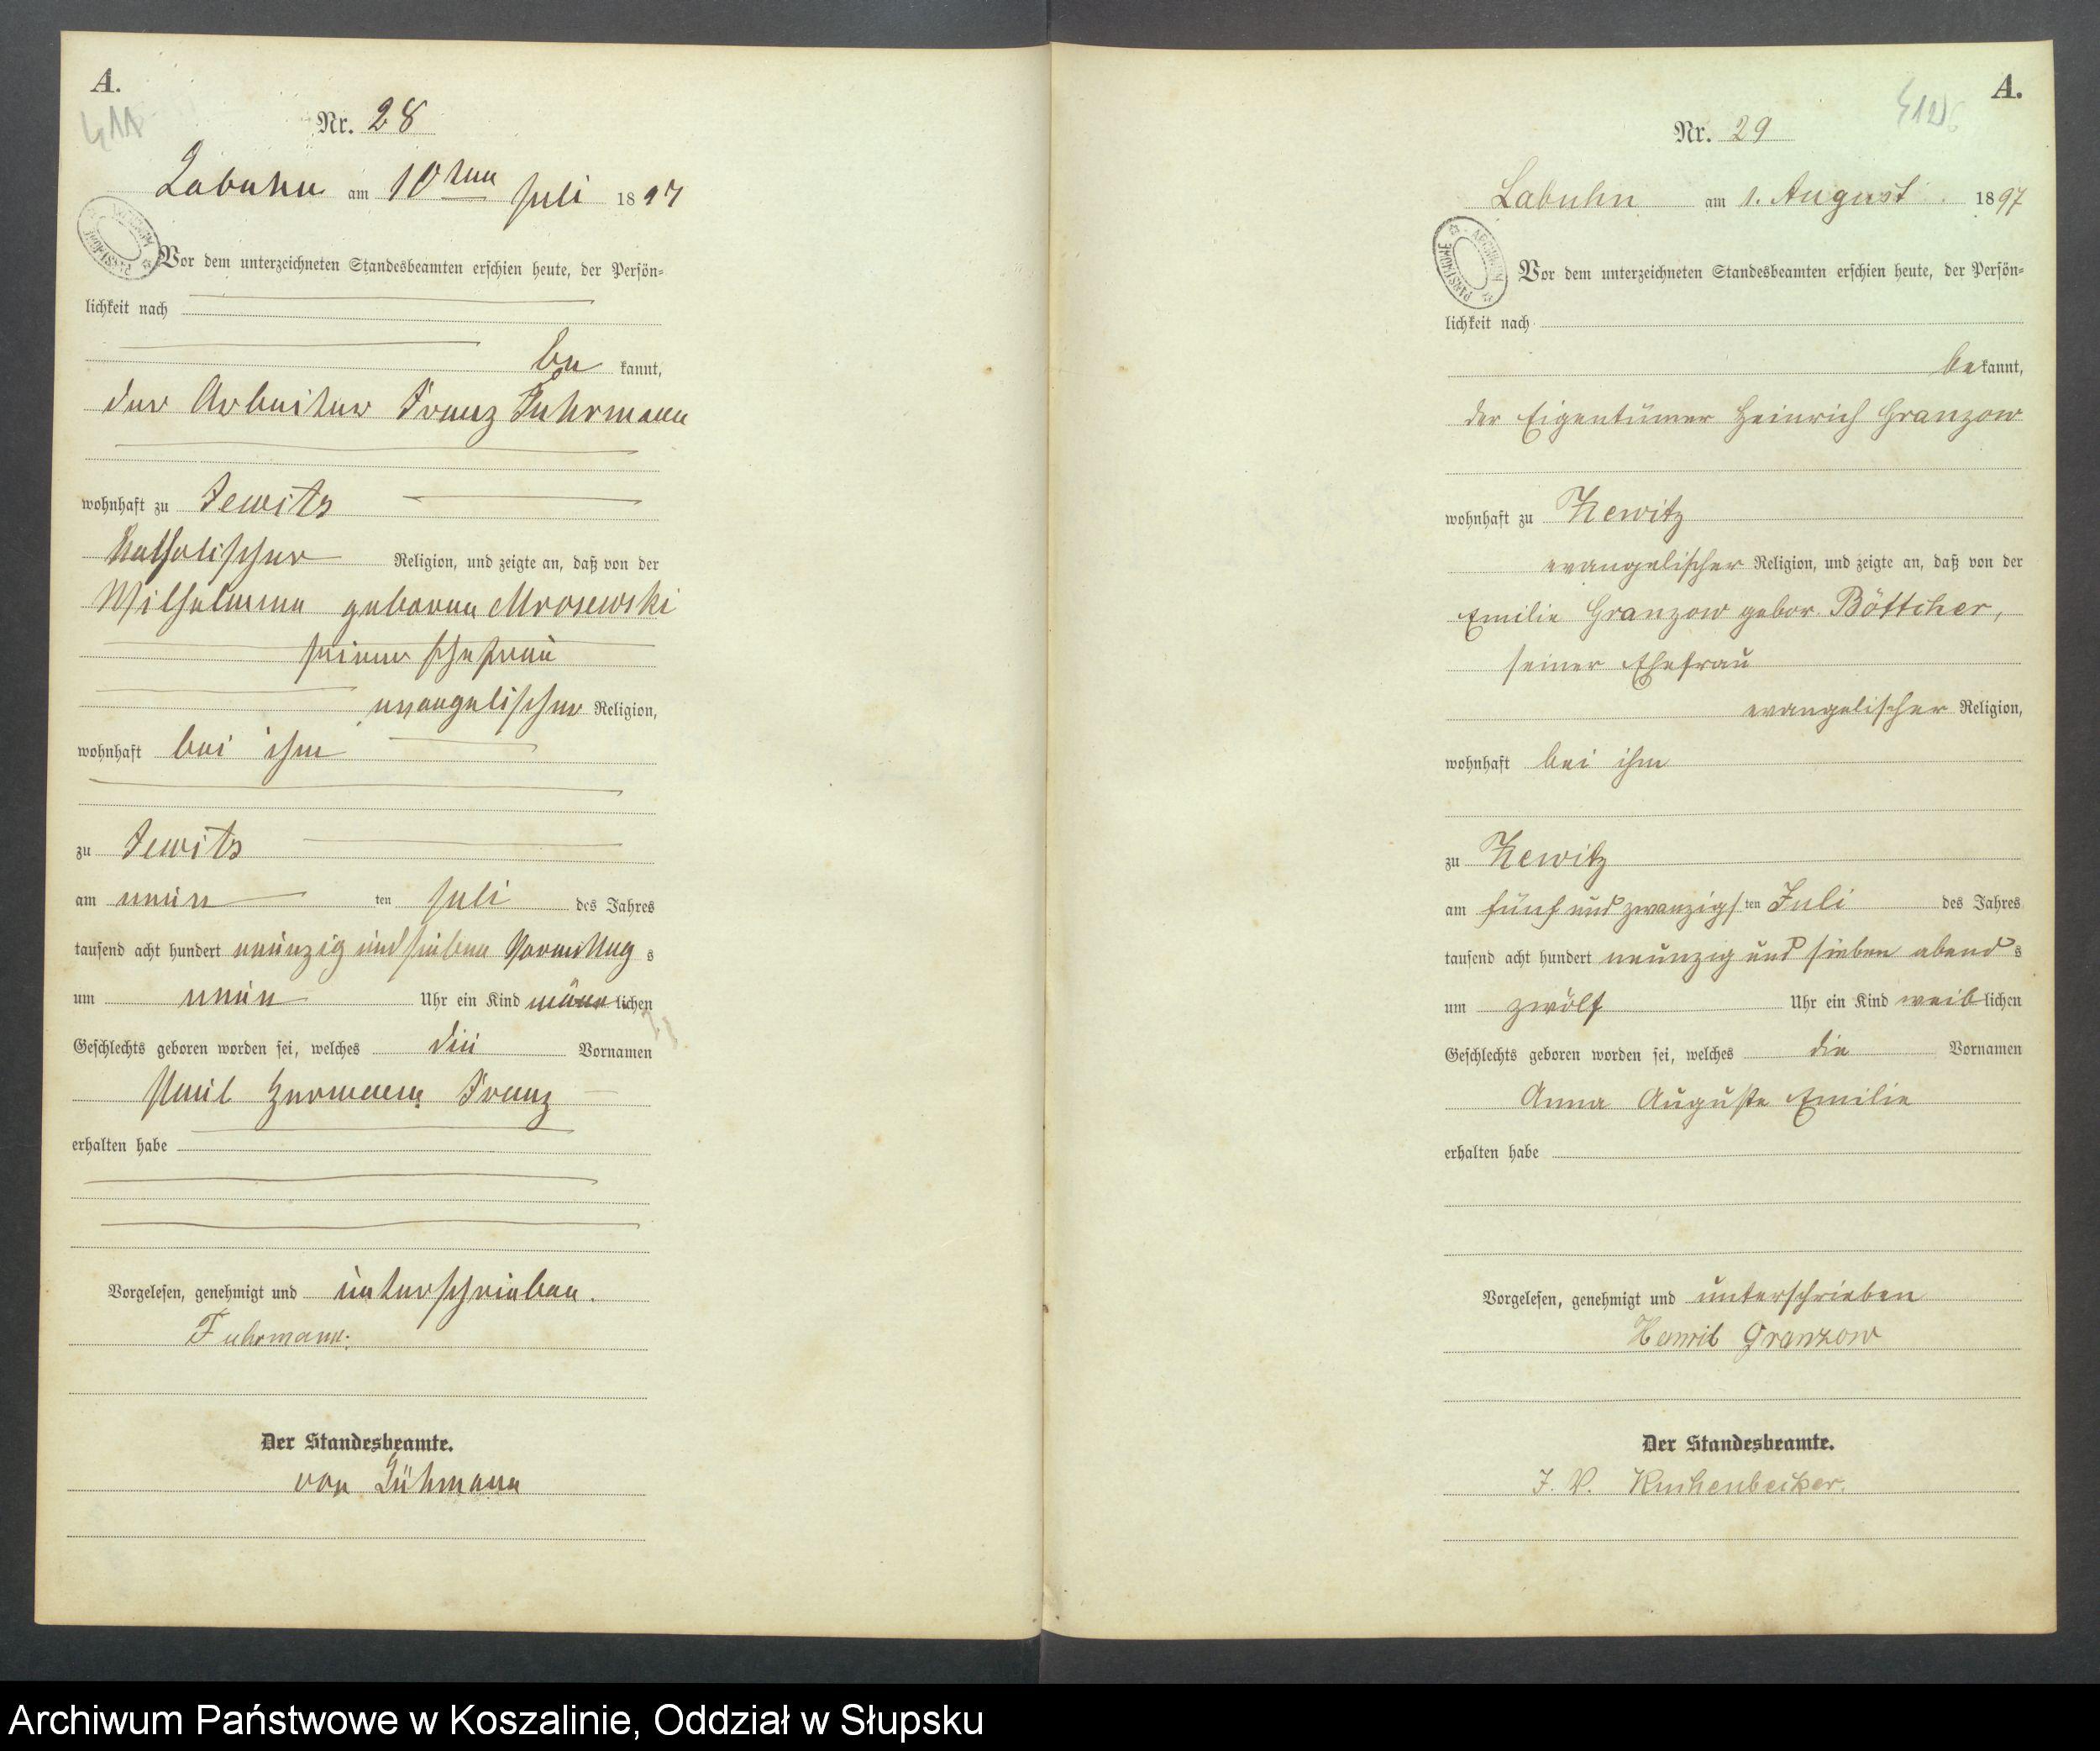 A.
Nr. 28
Labuhn am 10ten Juli 1897
Vor dem unterzeichneten Standesbeamten erschien heute, der Persön=
lichkeit nach
be kannt,
der Arbeiter Franz Fuhrmann
wohnhaft zu Jewitz
katholischer Religion, und zeigte an, daß von der
Wilhelmine geborene Mrosewski
seiner Ehefrau
evangelischer Religion,
wohnhaft bei ihm
zu Jewitz
am neun ten Juli des Jahres
tausend acht hundert neunzig und sieben Vormittag s
um neun Uhr ein Kind männ lichen
Geschlechts geboren worden sei, welches die Vornamen
Paul Hermann Franz
erhalten habe
Vorgelesen, genehmigt und unterschrieben.
Fuhrmann.
Der Standesbeamte.
von
A.
Nr. 29
Labuhn am 1. August 1897
Vor dem unterzeichneten Standesbeamten erschien heute, der Persön=
lichkeit nach
be kannt,
der Eigentümer Heinrich Granzow
wohnhaft zu
evangelischer Religion, und zeigte an, daß von der
Emilie Granzow gebor. Böttcher,
seiner Ehefrau
evangelischer Religion,
wohnhaft bei ihm
zu
am fünf und zwanzigsten Juli des Jahres
tausend acht hundert neunzig und sieben abend s
um zwölf Uhr ein Kind weib lichen
Geschlechts geboren worden sei, welches die Vornamen
Anna Auguste Emilie
erhalten habe
Vorgelesen, genehmigt und unterschrieben
Granzow
Der Standesbeamte.
J. V. Kuchenbecker.
Archiwum Państwowe w Koszalinie, Oddział w Słupsku